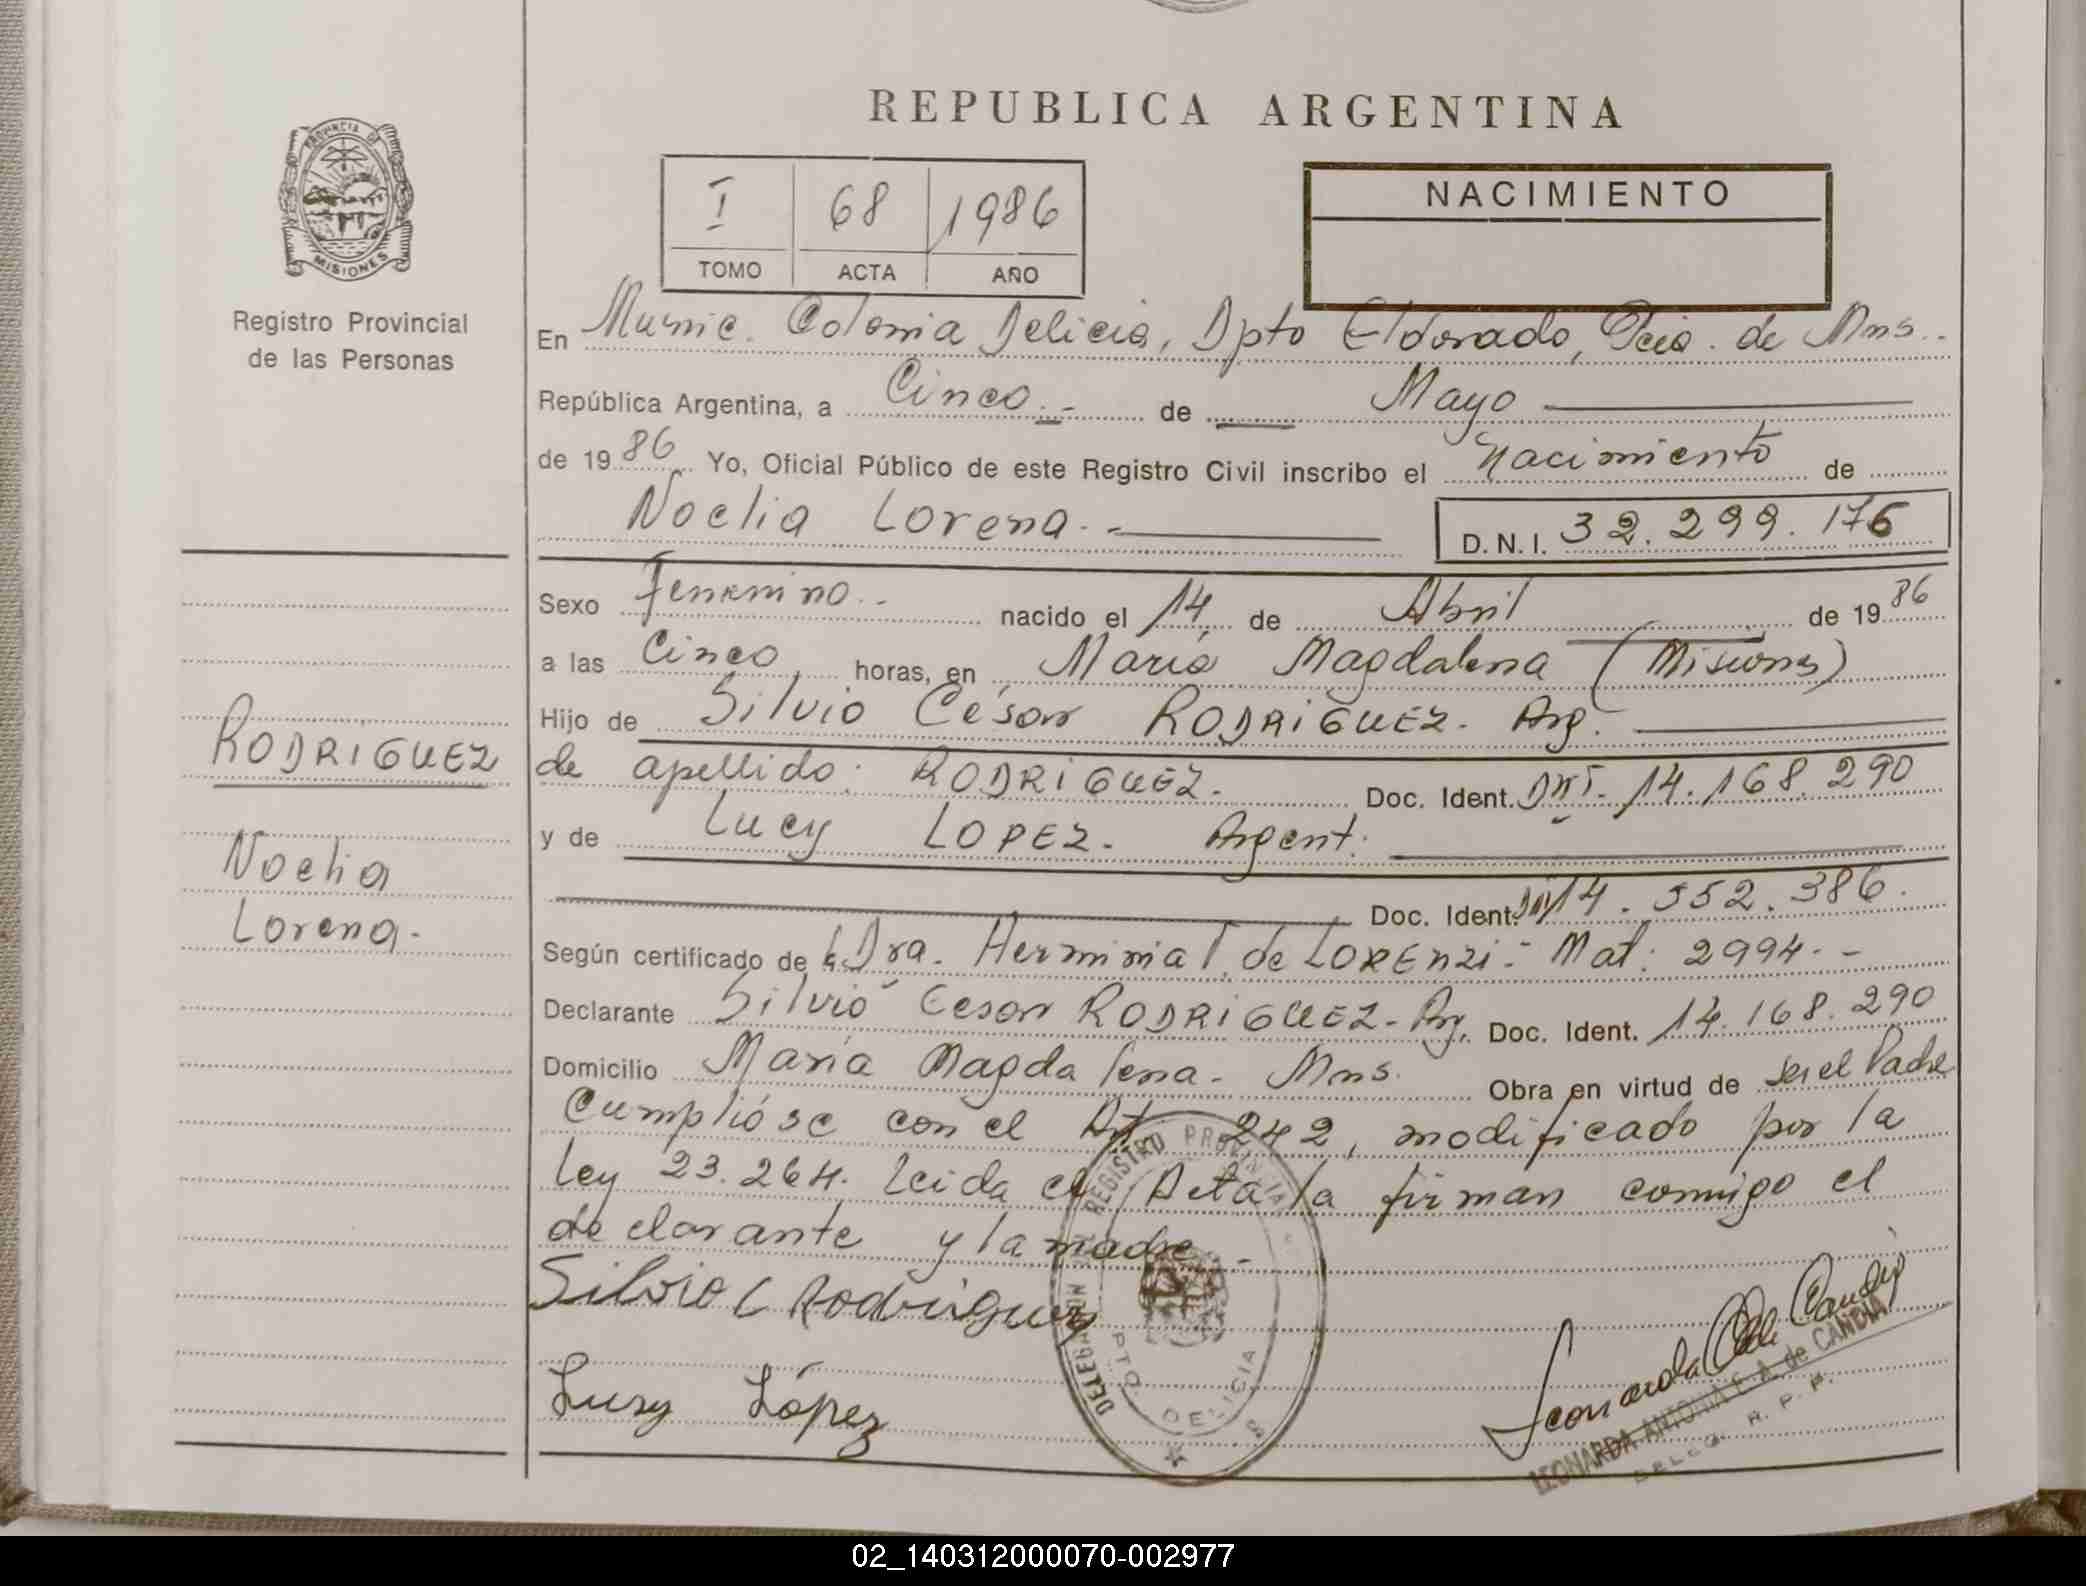 REPUBLICA ARGENTINA
PROVINCIA DE
MISIONES
Registro Provincial
de las Personas
I 68 1986
TOMO ACTA AÑO
NACIMIENTO
En Munic. Colonia Delicia, Dpto Eldorado, Pcia. de Mns.
República Argentina, a Cinco.- de Mayo
de 1986 Yo, Oficial Público de este Registro Civil inscribo el Nacimiento de
Noelia Lorena.-
D.N.I. 32.299.176
Sexo Femenino.- nacido el 14 de Abril de 1986
a las Cinco horas, en María Magdalena (Misiones)
Hijo de Silvio César RODRIGUEZ. Arg.
de apellido: RODRIGUEZ. Doc. Ident. DNI. 14.168.290
y de Lucy LOPEZ. Argent.
Doc. Ident. DNI 14.552.386.
Según certificado de la Dra. Herminia T. de LORENZI.- Mat: 2994.-
Declarante Silvio Cesar RODRIGUEZ- Arg. Doc. Ident. 14.168.290
Domicilio María Magdalena- Mns. Obra en virtud de ser el Padre
Cumplióse con el Art 242, modificado por la
Ley 23.264. Leida el Acta la firman conmigo el
declarante y la madre.-
RODRIGUEZ
Noelia
Lorena.
Silvio C Rodriguez
Lucy López
REGISTRO PROVINCIAL
DELEGACION
DPTO. DELICIA
Leonarda de Candia
LEONARDA ANTONIA E. A. de CANDIA
DELEG. R. P. P.
02_140312000070-002977